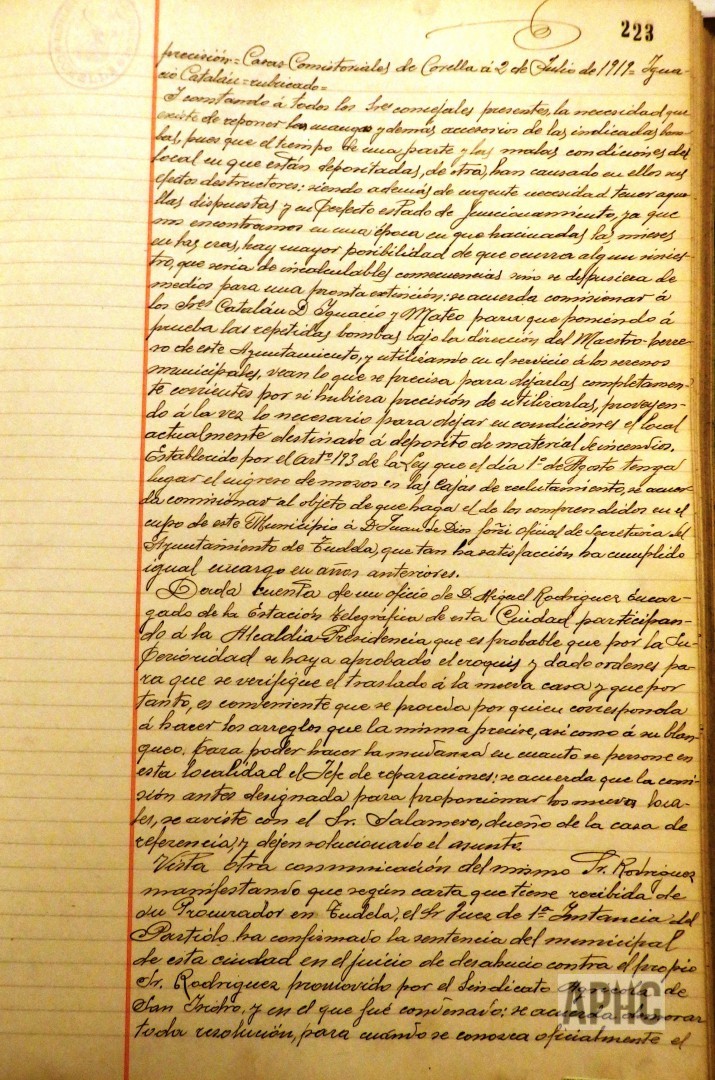 223
precisión = Casas Comistoriales de Corella á 2 de Julio de 1919 = Igna-
cio Catalán = rubricado =
Y constando á todos los Sres concejales presentes, la necesidad que
existe de reponer las mangas y demás accesorios de las indicadas bom-
bas, pues que el tiempo de una parte y las malas condiciones del
local en que están depositadas, de otra, han causado en ellos sus
efectos destructores: siendo además de urgente necesidad tener aque-
llas dispuestas y en perfecto estado de funcionamiento, ya que
nos encontramos en una época en que hacinadas la mieses
en las eras, hay mayor posibilidad de que ocurra algun sinies-
tro, que seria de incalculables consecuencias sino se dispusiera de
medios para una pronta extinción: se acuerda comisionar á
los Sres Catalán D. Ignacio y Mateo para que poniendo á
prueba las repetidas bombas bajo la dirección del Maestro-herre-
ro de este Ayuntamiento, y utilizando en el servicio á los serenos
municipales, vean lo que se precisa para dejarlas completamen-
te corrientes por si hubiera precisión de utilizarlas, proveyen-
do á la vez lo necesario para dejar en condiciones el local
actualmente destinado á deposito de material de incendios.
Establecido por el Artº 193 de la Ley que el día 1º de Agosto tenga
lugar el ingreso de mozos en las Cajas de reclutamiento, se acuer-
da comisionar al objeto de que haga el de los comprendidos en el
cupo de este Municipio á D. Juan de Dios Goñi oficial de Secretaria del
Ayuntamiento de Tudela, que tan ha satisfacción ha cumplido
igual encargo en años anteriores.
Dada cuenta de un oficio de D. Miguel Rodriguez Encar-
gado de la Estación telegráfica de esta Ciudad participan-
do á la Alcaldia-Presidencia que es probable que por la Su-
perioridad se haya aprobado el croquis y dado ordenes pa-
ra que se verifique el traslado á la nueva casa y que por
tanto, es conveniente que se proceda por quien corresponda
á hacer los arreglos que la misma precise, asi como á su blan-
queo, para poder hacer la mudanza en cuanto se persone en
esta localidad el Jefe de reparaciones; se acuerda que la comi-
sión antes designada para proporcionar los nuevos loca-
les, se aviste con el Sr. Salamero, dueño de la casa de
referencia, y dejen solucionado el asunto.
Vista otra comunicación del mismo Sr. Rodriguez
manifestando que según carta que tiene recibida de
su Procurador en Tudela, el Sr Juez de 1ª Instancia del
Partido ha confirmado la sentencia del municipal
de esta ciudad en el juicio de desahucio contra el propio
Sr. Rodriguez promovido por el Sindicato Agricola de
San Isidro, y en el que fué condenado; se acuerda demorar
toda resolución, para cuándo se conozca oficialmente el
APHC